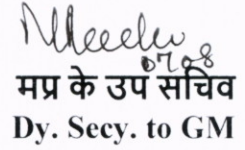 07.08
मप्र के उप सचिव
Dy. Secy. to GM